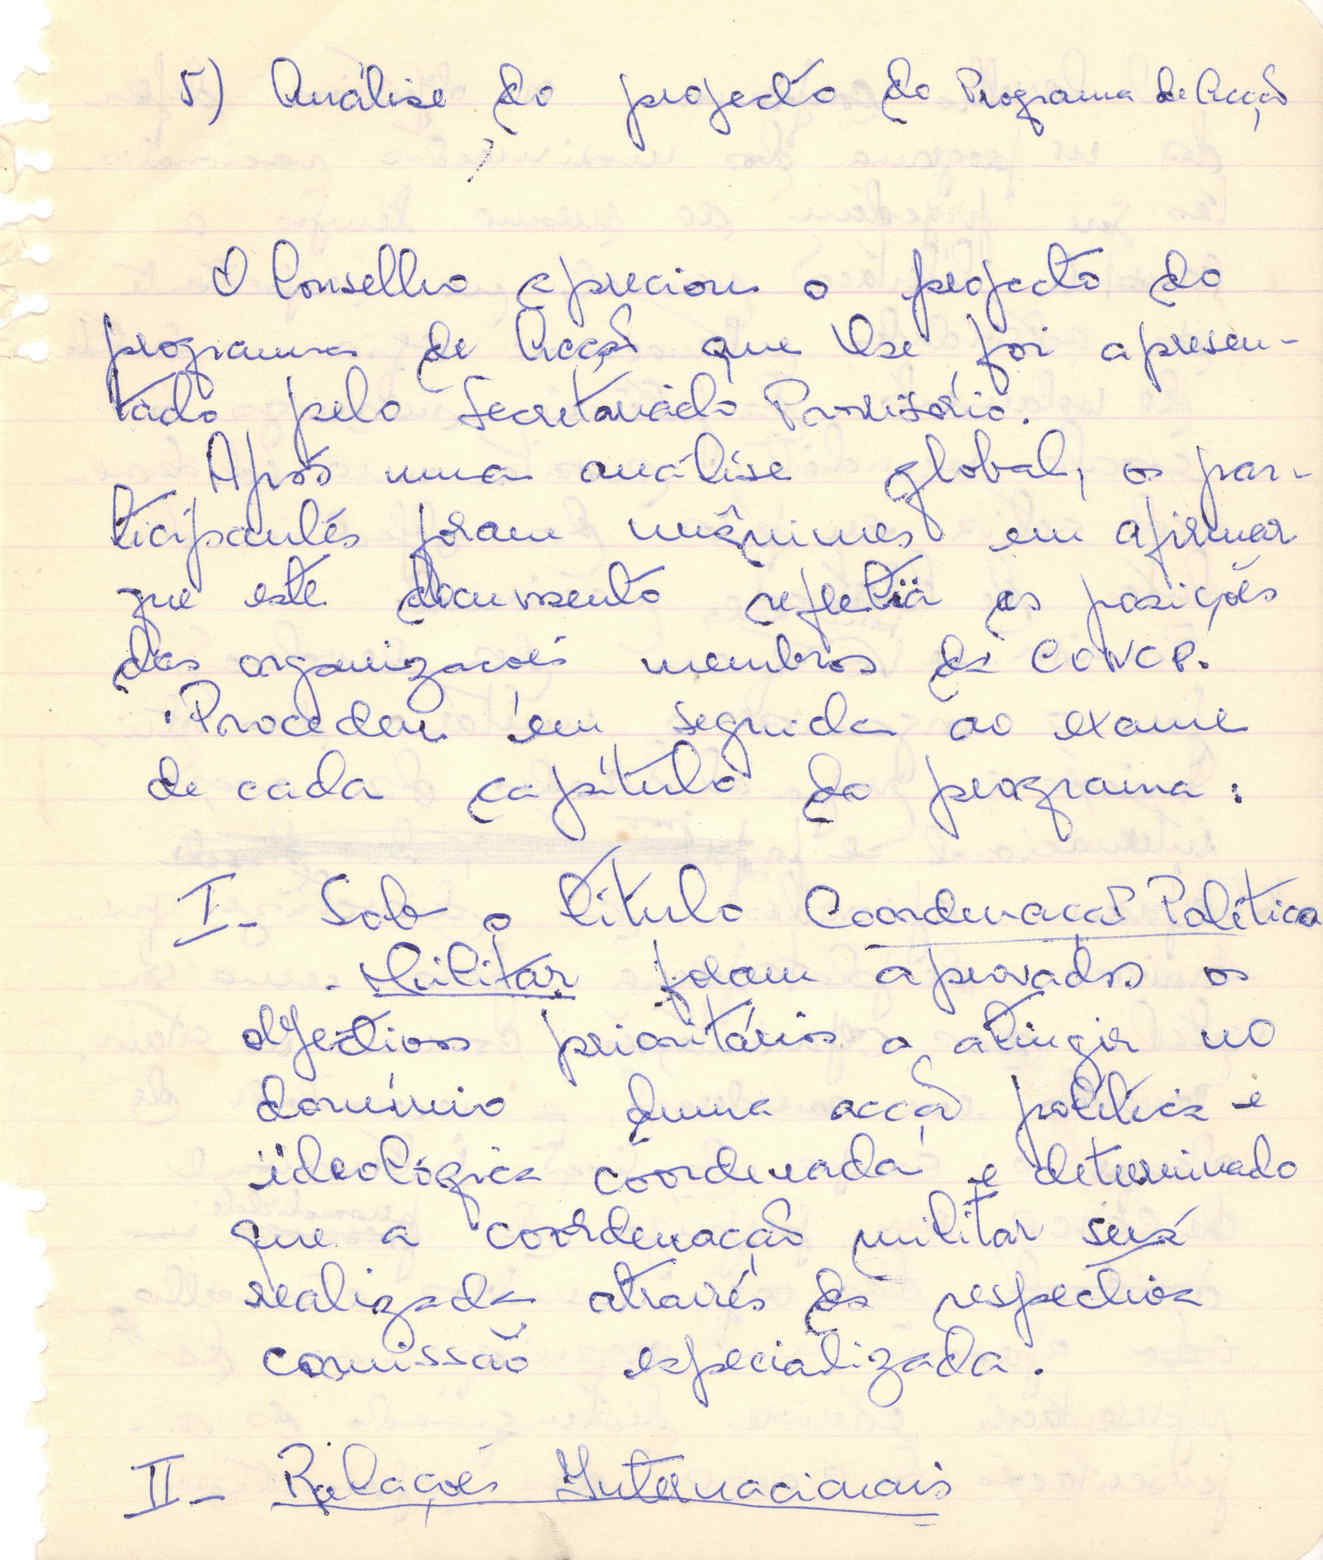 5) Análise do projecto do Programa de Acção
O Conselho apreciou o projecto do
programa de Acção que lhe foi apresen-
tado pelo Secretariado Provisório.
Após uma análise global, os par-
ticipantes foram unânimes em afirmar
que este documento refletia as posições
das organizações membros da CONCP.
Procedeu em seguida ao exame
de cada capítulo do programa:
I - Sob o título Coordenação Política
- Militar foram aprovados os
objectivos prioritários a atingir no
domínio duma acção política e
ideológica coordenada e determinado
que a coordenação militar será
realizada através da respectiva
comissão especializada.
II - Relações Internacionais